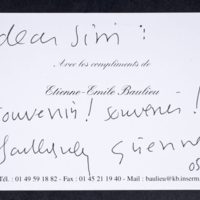 dear Sir :
Avec les compliments de
Etienne-Emile Baulieu
souvenir ! souvenir !
Etienne
Tél. : 01 49 59 18 82 - Fax : 01 45 21 19 40 - Mail : baulieu@kb.inserm